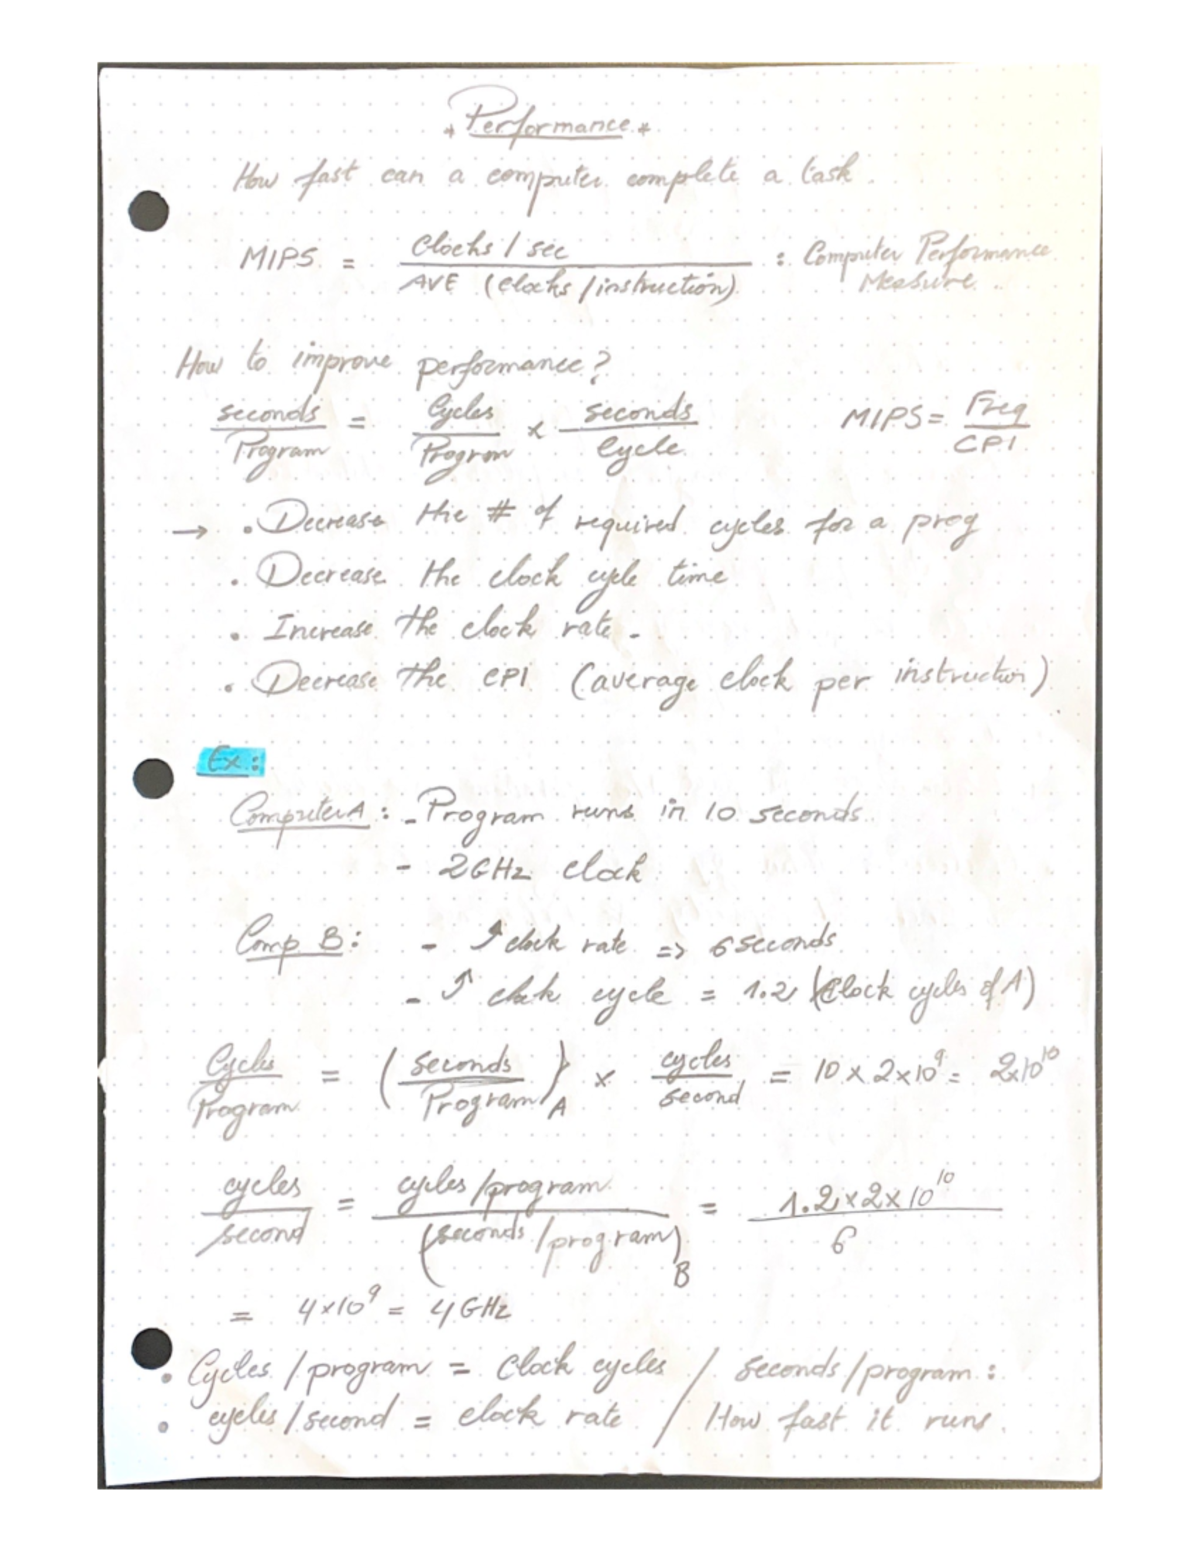 * Performance *
How fast can a computer complete a task.
MIPS = Clocks / sec / AVE (clocks / instruction) : Computer Performance Measure.
How to improve performance?
seconds / Program = Cycles / Program × seconds / Cycle MIPS = Freq / CPI
→ • Decrease the # of required cycles for a prog
• Decrease the clock cycle time
• Increase the clock rate.
• Decrease the CPI (average clock per instruction)
Ex:
Computer A : - Program runs in 10 seconds.
- 2GHz clock.
Comp B : - ↑ clock rate => 6 seconds.
- ↑ clock cycle = 1.2 (Clock cycles of A)
Cycles / Program = (seconds / Program)A × cycles / second = 10 × 2×10⁹ = 2×10¹⁰
cycles / second = cycles /program / (seconds /program)B = 1.2×2×10¹⁰ / 6
= 4×10⁹ = 4GHz
• Cycles /program = Clock cycles / seconds/program :
• cycles/second = clock rate / How fast it runs.